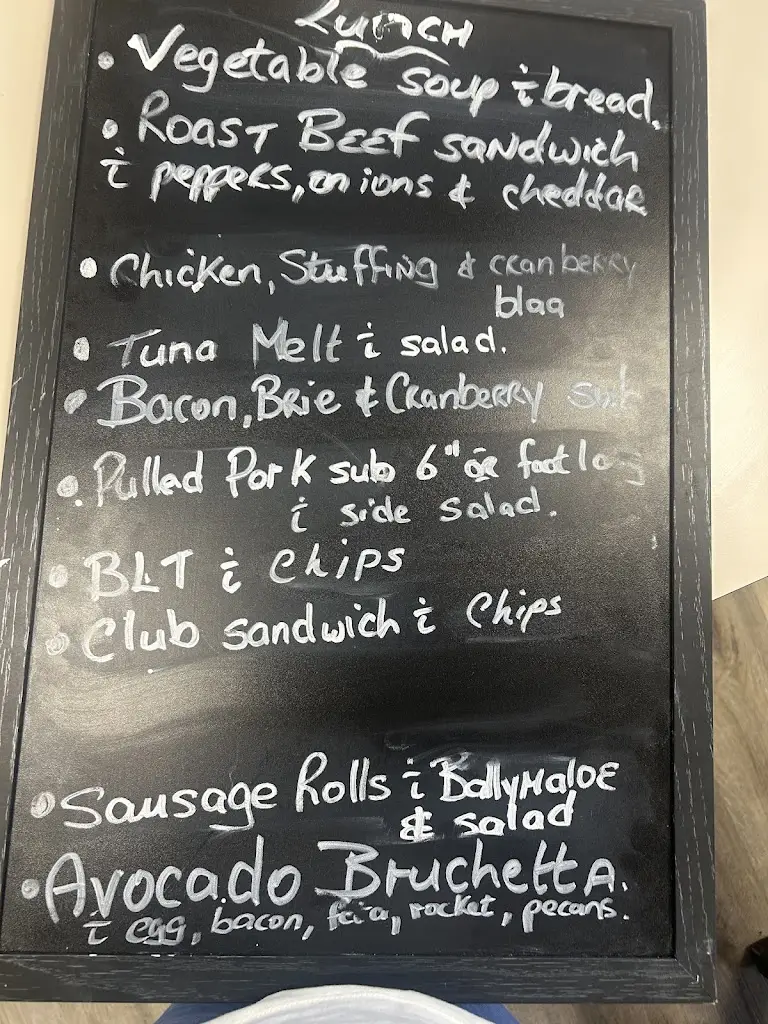 Lunch
• Vegetable soup c̄ bread.
• Roast Beef sandwich
c̄ peppers, onions & cheddar
• Chicken, Stuffing & cranberry
blaa
• Tuna Melt c̄ salad.
• Bacon, Brie & Cranberry sub
• Pulled Pork sub 6" or foot long
c̄ side salad.
• BLT c̄ chips
• Club sandwich c̄ Chips
• Sausage Rolls c̄ Ballymaloe
& salad
• Avocado Bruchetta.
c̄ egg, bacon, feta, rocket, pecans.